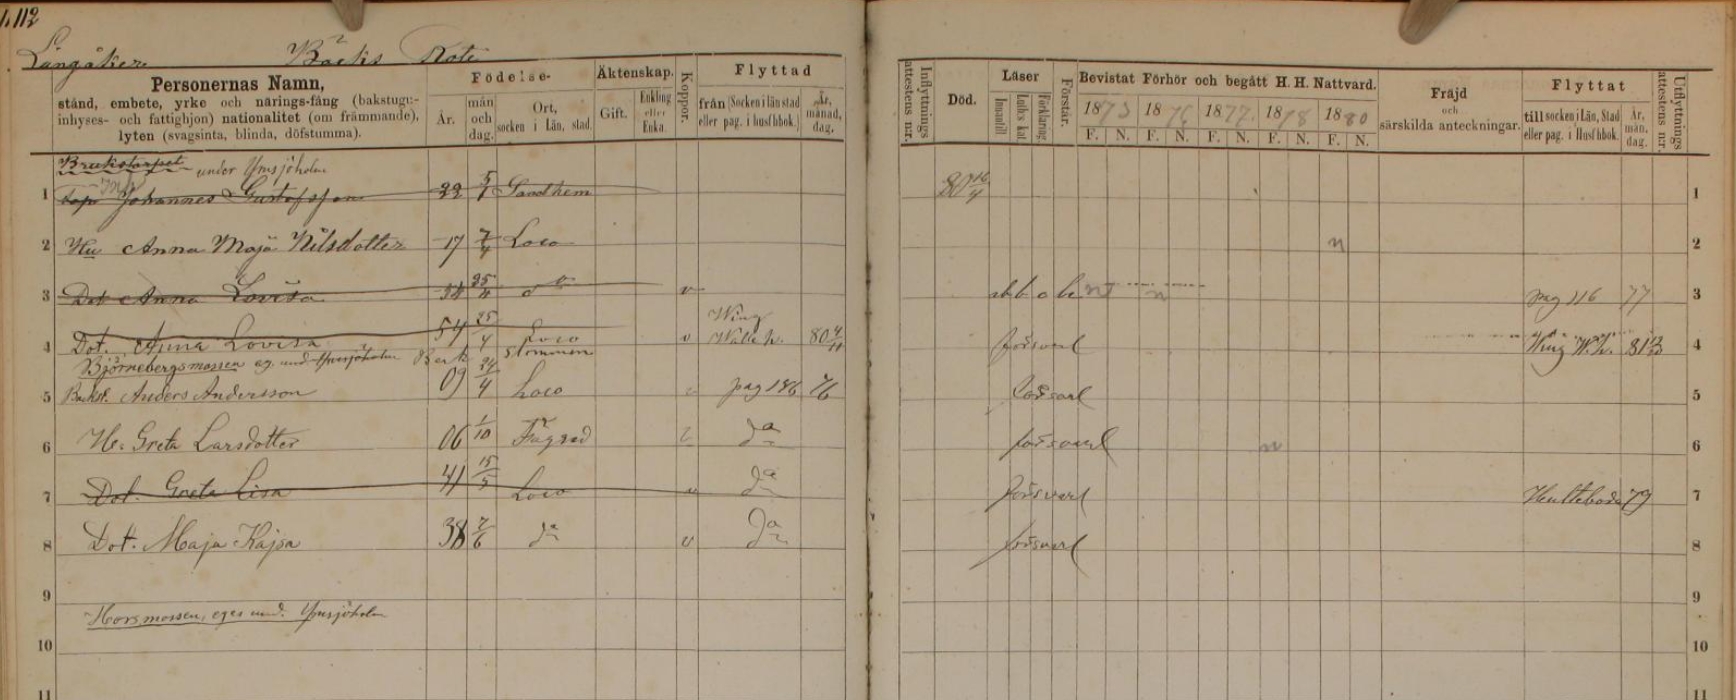 112
Långåker Bäcks Rote
Personernas Namn,
stånd, embete, yrke och närings-fång (bakstugu-
inhyses- och fattighjon) nationalitet (om främmande),
lyten (svagsinta, blinda, döfstumma).
Födelse-
År.
mån
och
dag.
Ort,
socken i Län, stad.
Äktenskap.
Gift.
Enkling
eller
Enka.
Koppor.
Flyttad
från (Socken i län stad
eller pag. i husf hbok.)
År,
månad,
dag.
Inflyttnings
attestens nr.
Död.
Läser
Innantill
Luth:s kat.
Förklaring.
Förstår.
Bevistat Förhör och begått H. H. Nattvard.
1875 1876 1877. 1878 1880
F. N. F. N. F. N. F. N. F. N.
Fräjd
och
särskilda anteckningar.
Flyttat
till socken i Län, Stad
eller pag. i Husf hbok.
År,
mån.
dag.
Utflyttnings
attestens n:r.
Brukstorpet under Ymsjöholm
1 Johannes Gustafsson 22 5/1 Sandhem 80 16/4 1
2 Hu Anna Maja Nilsdotter 17 7/4 Loco n 2
3 Dot Anna Lovisa 54 25/4 d:o v pag 116 77 3
Wing
4 Dot. Anna Lovisa 54 25/4 Loco v 80 4/11 försvarl 81 4
Björnebergsmossen eg. und. Ymsjöholm
5 Backst. Anders Andersson 09 24/4 Loco pag 186 76 försvarl 5
6 H. Greta Larsdotter 06 1/10 Fågred da försvarl n 6
7 Dot. Greta Lisa 41 15/5 Loco da försvarl 79 7
8 Dot. Maja Kajsa 38 2/6 da v da försvarl 8
9 9
Horsmossen, eges und. Ymsjöholm
10 10
11 11